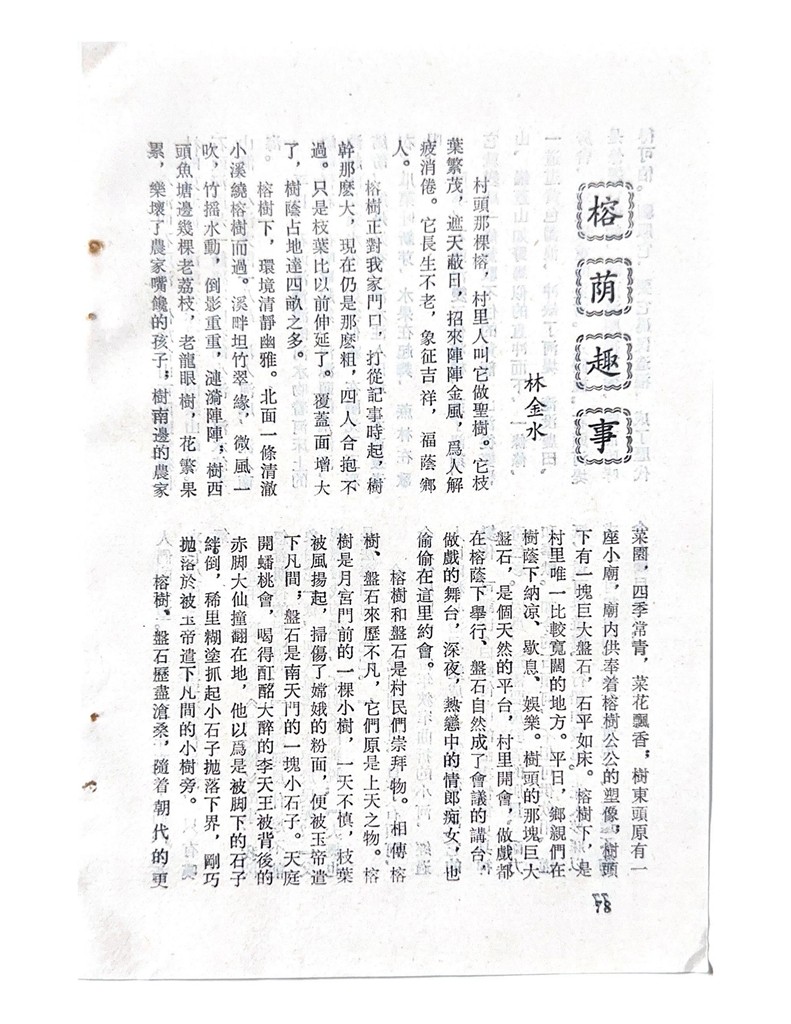 榕荫趣事
林金水
村頭那棵榕，村里人叫它做聖樹。它枝
葉繁茂，遮天蔽日，招來陣陣金風，爲人解
疲消倦。它長生不老，象征吉祥，福蔭鄉
人。
榕樹正對我家門口，打從記事時起，樹
幹那麼大，現在仍是那麼粗，四人合抱不
過。只是枝葉比以前伸延了。覆蓋面增大
了，樹蔭占地達四畝之多。
榕樹下，環境清靜幽雅。北面一條清澈
小溪繞榕樹而過。溪畔坦竹翠緣，微風一
吹，竹摇水動，倒影重重，漣漪陣陣；樹西
頭魚塘邊幾棵老荔枝，老龍眼樹，花繁果
累，樂壞了農家嘴饞的孩子；樹南邊的農家
菜園，四季常青，菜花飄香；樹東頭原有一
座小廟，廟内供奉着榕樹公公的塑像。樹頭
下有一塊巨大盤石，石平如床。榕樹下，是
村里唯一比較寬闊的地方。平日，鄉親們在
樹蔭下納凉、歇息、娛樂。樹頭的那塊巨大
盤石，是個天然的平台，村里開會，做戲都
在榕蔭下舉行、盤石自然成了會議的講台，
做戲的舞台，深夜，熱戀中的情郎痴女，也
偷偷在這里約會。
榕樹和盤石是村民們崇拜物。相傳榕
樹、盤石來歷不凡，它們原是上天之物。榕
樹是月宮門前的一棵小樹，一天不慎，枝葉
被風揚起，掃傷了嫦娥的粉面，便被玉帝遣
下凡間；盤石是南天門的一塊小石子。天庭
開蟠桃會，喝得酊酩大醉的李天王被背後的
赤脚大仙撞翻在地，他以爲是被脚下的石子
絆倒，稀里糊塗抓起小石子拋落下界，剛巧
拋落於被玉帝遣下凡間的小樹旁。
榕樹、盤石歷盡滄桑，隨着朝代的更